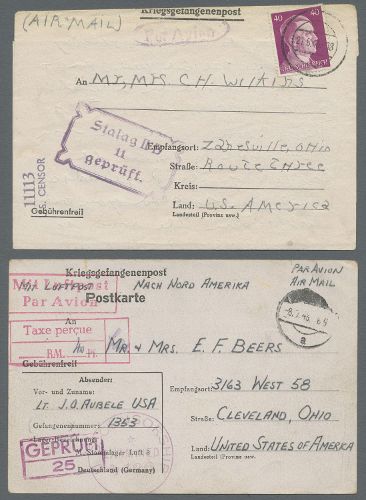 Kriegsgefangenenpost
(AIR MAIL)
Par Avion
40 40
An Mr, Mrs C.H. Wilkins
Stalag II B
11
geprüft.
Empfangsort: Zanesville, Ohio
Straße: Route Three
Kreis:
Land: U.S. America
Landesteil (Provinz usw.)
11113
U.S. CENSOR
Gebührenfrei!
Kriegsgefangenenpost
Mit Luftpost
Par Avion
MIT LUFTPOST NACH NORD AMERIKA
PAR AVION
AIR MAIL
Postkarte
Taxe perçue
RM. Pf.
An
An MR. & MRS. E. F. BEERS
Gebührenfrei!
Absender:
Vor- und Zuname:
LT. J.O. AUBELE USA
Gefangenennummer: 1353
Lager-Bezeichnung:
M.-Stammlager Luft 3
Deutschland (Germany)
GEPRÜFT
25
Empfangsort: 3163 WEST 58
Straße: CLEVELAND, OHIO
Land: UNITED STATES OF AMERICA
Landesteil (Provinz usw.)
a